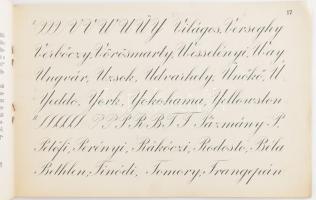 17
VV U U Ü Y Világos, Verseghy
Verbőczy, Vörösmarty, Wesselényi, Way
Ungvár, Uzsok, Udvarhely, Ünőkő, Ü.
Yeddo, York, Yokohama, Yellowston
P R B T F Pázmány P.
Petőfi, Perényi, Rákóczi, Rodosto, Béla
Bethlen, Tinódi, Tomory, Frangepán